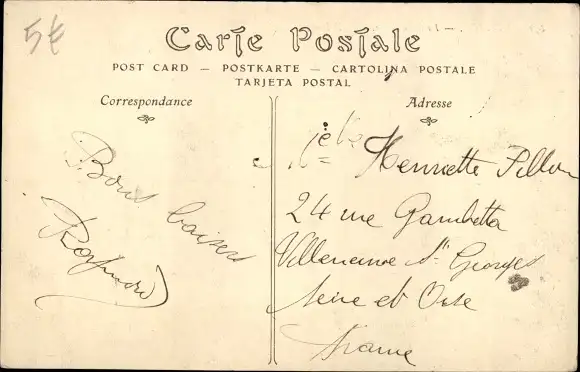 5€
Carte Postale
POST CARD — POSTKARTE — CARTOLINA POSTALE
TARJETA POSTAL
Correspondance
Bons baisers
Raymond
Adresse
Henriette Pillon
24 rue Gambetta
Villeneuve St Georges
Seine et Oise
France